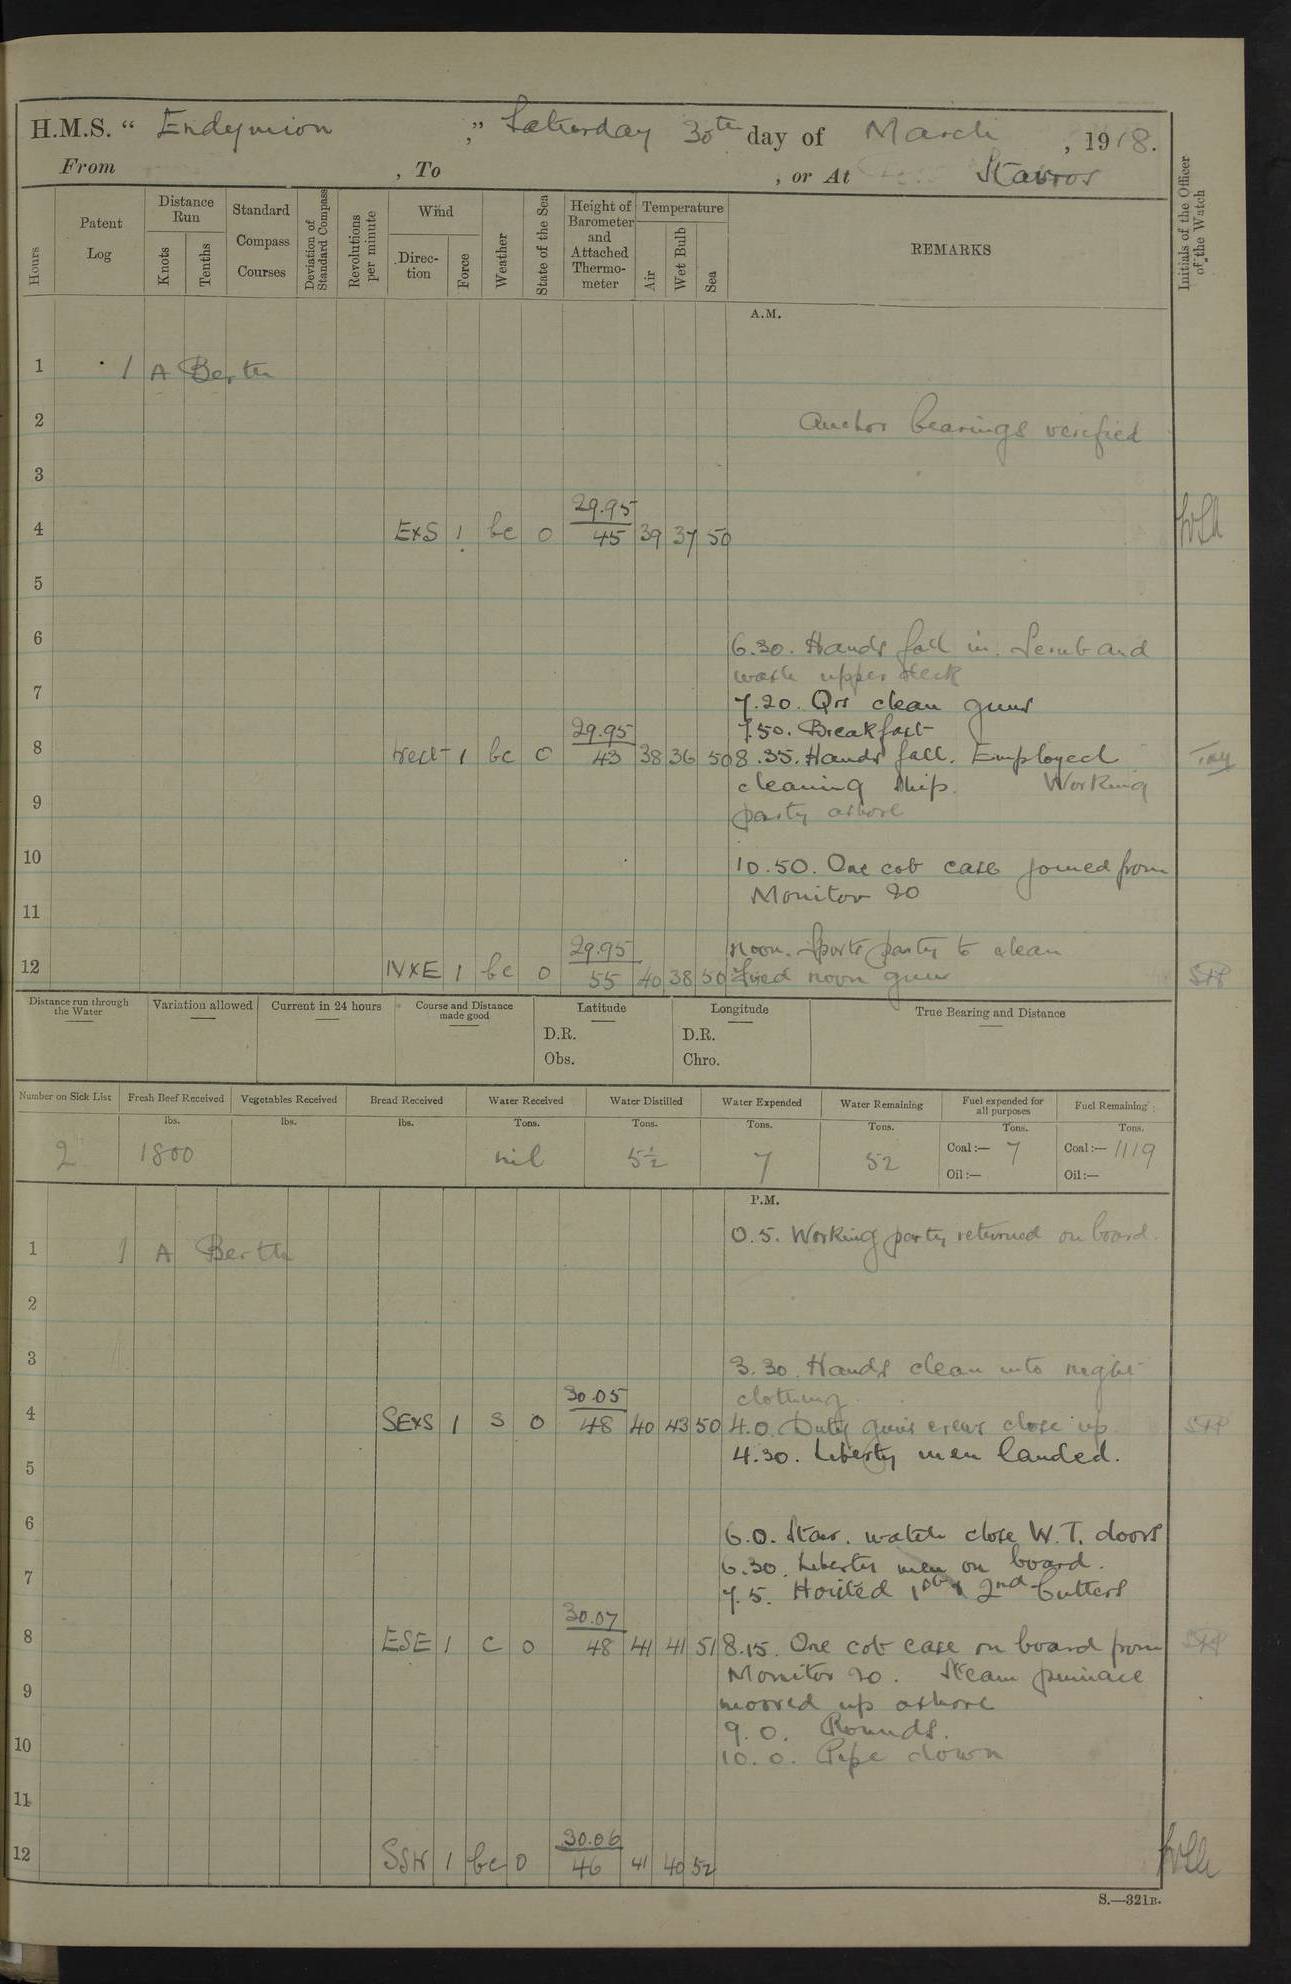 H.M.S. “ Endymion ,” Saturday 30th day of March , 1918.
From , To , or At Stavros
Hours
Patent Log
Distance Run
Knots
Tenths
Standard Compass Courses
Deviation of Standard Compass
Revolutions per minute
Wind
Direction
Force
Weather
State of the Sea
Height of Barometer and Attached Thermometer
Temperature
Air
Wet Bulb
Sea
REMARKS
Initials of the Officer of the Watch
A.M.
1 1 A Berth
2 Anchor bearings verified
3
29.95
4 ExS 1 bc 0 45 39 37 50
5
6 6.30. Hands fall in. Scrub and
wash upper deck
7 7.20. Qrs clean guns
29.95 7.50. Breakfast
8 West 1 bc 0 43 38 36 50 8.35. Hands fall. Employed
cleaning ship. Working
9 party ashore
10 10.50. One cot case joined from
Monitor 20
11
29.95 Noon. Sports party to clean
12 NxE 1 bc 0 55 40 38 50 Fired noon gun
Distance run through the Water
Variation allowed
Current in 24 hours
Course and Distance made good
Latitude
D.R.
Obs.
Longitude
D.R.
Chro.
True Bearing and Distance
Number on Sick List
Fresh Beef Received
Vegetables Received
Bread Received
Water Received
Water Distilled
Water Expended
Water Remaining
Fuel expended for all purposes
Fuel Remaining
lbs. lbs. lbs. Tons. Tons. Tons. Tons. Tons. Tons.
2 1800 nil 5½ 7 52 Coal:— 7 Coal:— 1119
Oil:— Oil:—
P.M.
0.5. Working party returned on board.
1 1 A Berth
2
3 3.30. Hands clean into night
30.05 clothing.
4 SExS 1 s 0 48 40 43 50 4.0. Duty gun's crews close up
4.30. Liberty men landed.
5
6 6.0. Star. watch close W.T. doors
6.30. Liberty men on board.
7 7.5. Hoisted 1st & 2nd Cutters
30.07
8 ESE 1 c 0 48 41 41 51 8.15. One cot case on board from
Monitor 20. Steam pinnace
9 moored up ashore
9.0. Rounds.
10 10.0. Pipe down
11
30.06
12 SSW 1 bc 0 46 41 40 52
S.—321B.